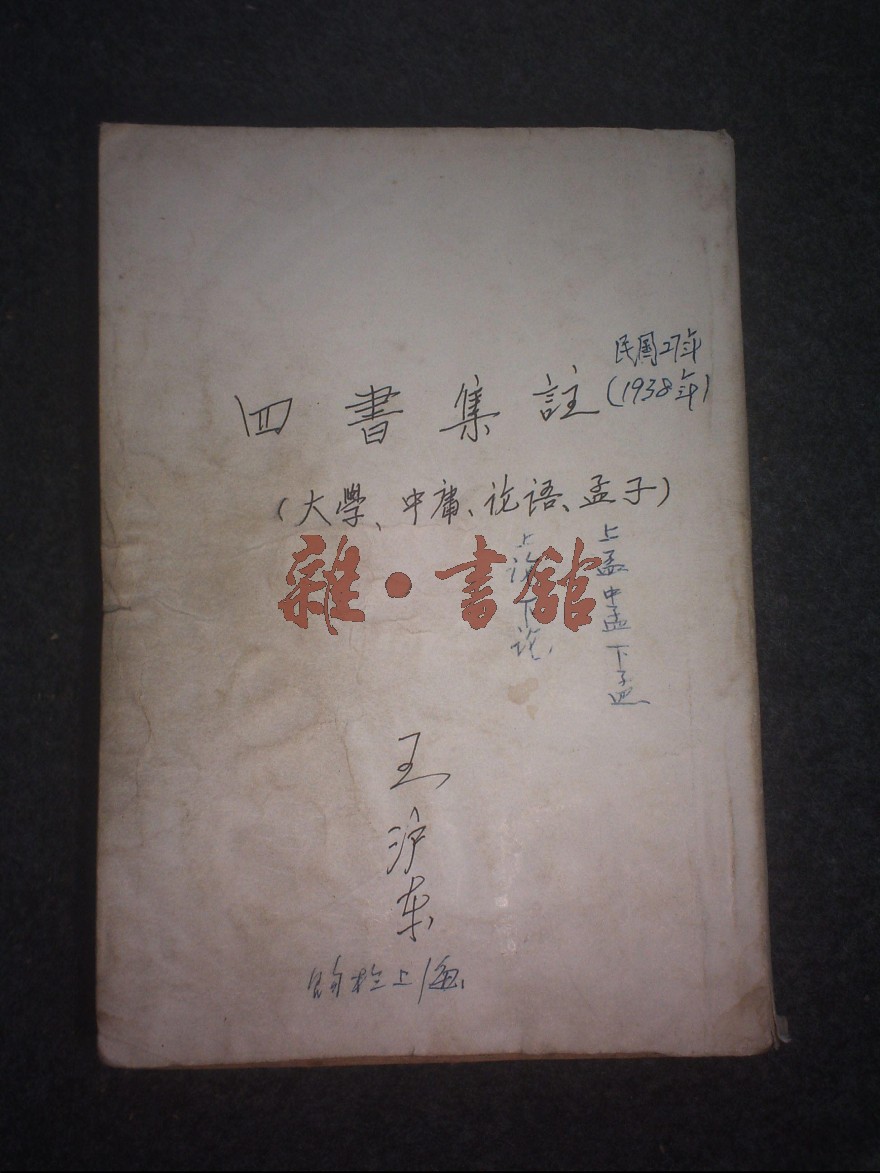 民国27年
(1938年)
四書集註
(大學、中庸、论语、孟子)
上孟中孟下孟
上论下论
雜·書館
王沪东
购於上海